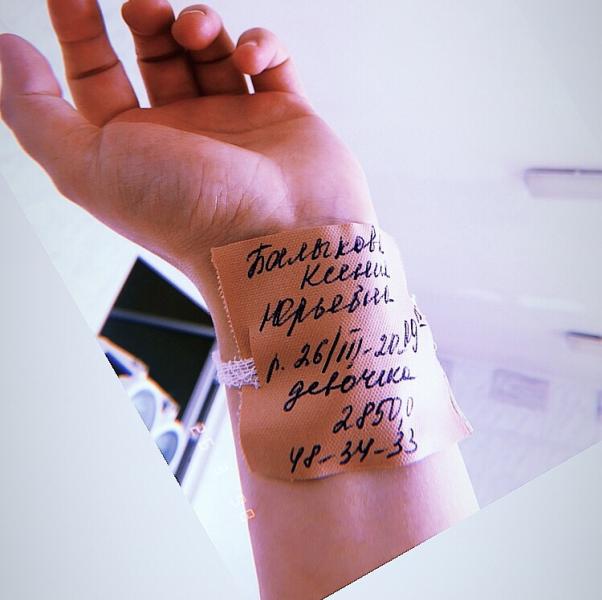 Балыкова
Ксения
Юрьевна
р. 26/III-2019г
девочка
2850,0
48-34-33